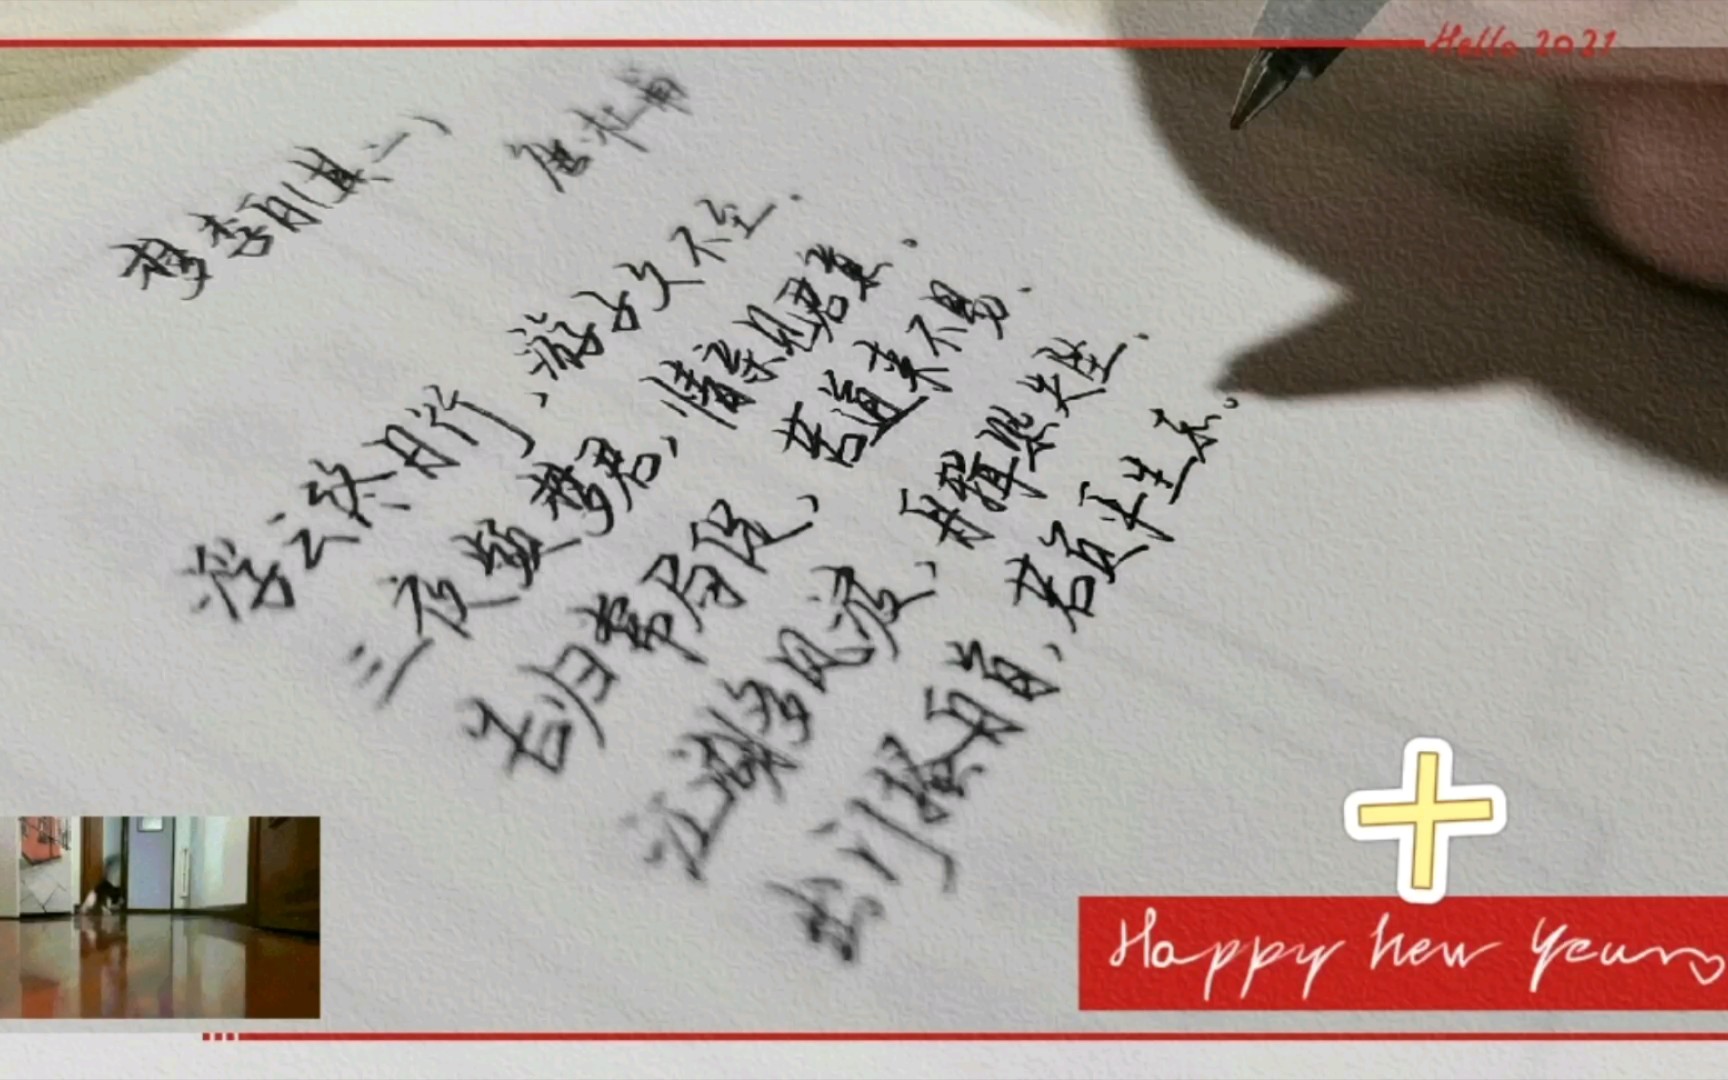 Hello 2021
梦李白(其二)
唐·杜甫
浮云终日行,游子久不至.
三夜频梦君,情亲见君意.
告归常局促,苦道来不易.
江湖多风波,舟楫恐失坠.
出门搔白首,若负平生志。
Happy New Year